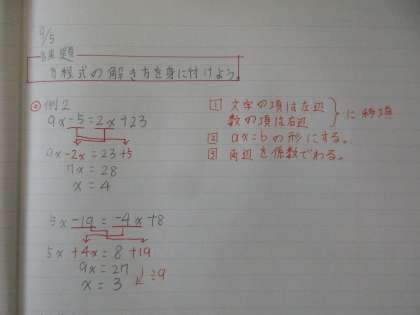 9/5
課題
方程式の解き方を身に付けよう。
例2
9x-5=2x+23
9x-2x=23+5
7x=28
x=4
5x-19=-4x+8
5x+4x=8+19
9x=27
÷9
x=3
1 文字の項は左辺
数の項は右辺
に移項
2 ax=bの形にする。
3 両辺を係数でわる。